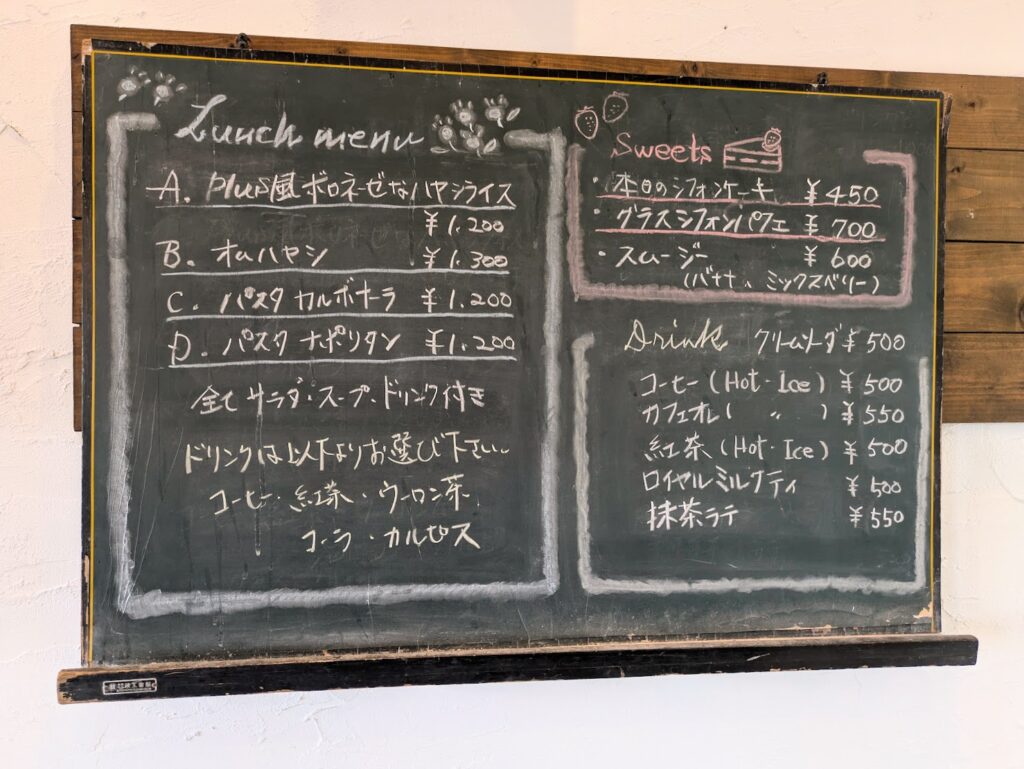 Lunch menu
A. Plus風ボロネーゼなハヤシライス
¥1.200
B. オムハヤシ ¥1.300
C. パスタ カルボナーラ ¥1.200
D. パスタ ナポリタン ¥1.200
全て サラダ・スープ・ドリンク付き
ドリンクは以下よりお選び下さい。
コーヒー・紅茶・ウーロン茶
コーラ・カルピス
Sweets
・本日のシフォンケーキ ¥450
・グラスシフォンパフェ ¥700
・スムージー ¥600
(バナナ、ミックスベリー)
Drink クリームソーダ ¥500
コーヒー (Hot・Ice) ¥500
カフェオレ ( 〃 ) ¥550
紅茶 (Hot・Ice) ¥500
ロイヤルミルクティ ¥500
抹茶ラテ ¥550